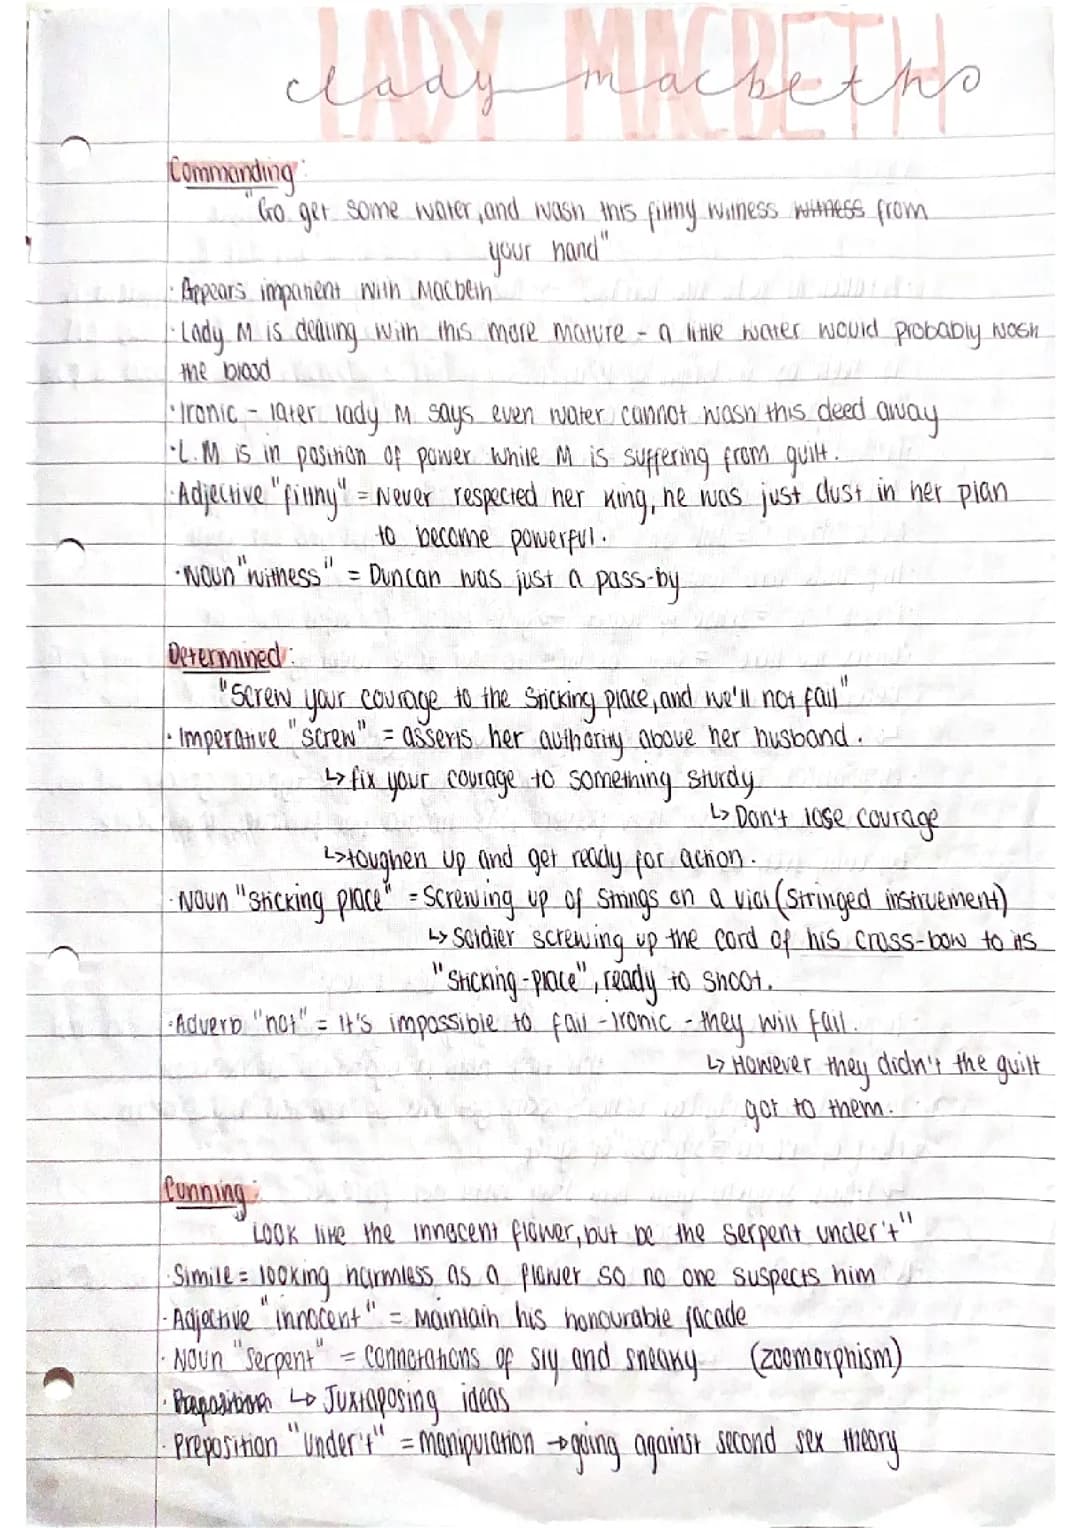 LADY MACBETH
lady macbeth
Commanding:
"Go get some water, and wash this filthy witness witness from
your hand"
· Appears impatient with Macbeth
· Lady M is dealing with this more mature - a little water would probably wash
the blood
· Ironic - later lady M says even water cannot wash this deed away
· L.M is in position of power while M is suffering from guilt.
· Adjective "filthy" = Never respected her king, he was just dust in her plan
to become powerful.
· Noun "witness" = Duncan was just a pass-by
Determined:
"Screw your courage to the sticking place, and we'll not fail"
· Imperative "screw" = asserts her authority above her husband.
↳ fix your courage to something sturdy
↳ Don't lose courage
↳ toughen up and get ready for action.
· Noun "sticking place" = Screwing up of strings on a vial (stringed instruement)
↳ Soldier screwing up the cord of his cross-bow to its
"sticking-place", ready to shoot.
· Adverb "not" = it's impossible to fail - ironic - they will fail.
↳ However they didn't the guilt
got to them.
Cunning:
"Look like the innocent flower, but be the serpent under't"
· Simile = looking harmless as a flower so no one suspects him
· Adjective "innocent" = Maintain his honourable facade
· Noun "serpent" = connotations of sly and sneaky (zoomorphism)
· Preposition ↳ Juxtaposing ideas
· Preposition "under't" = manipulation → going against second sex theory